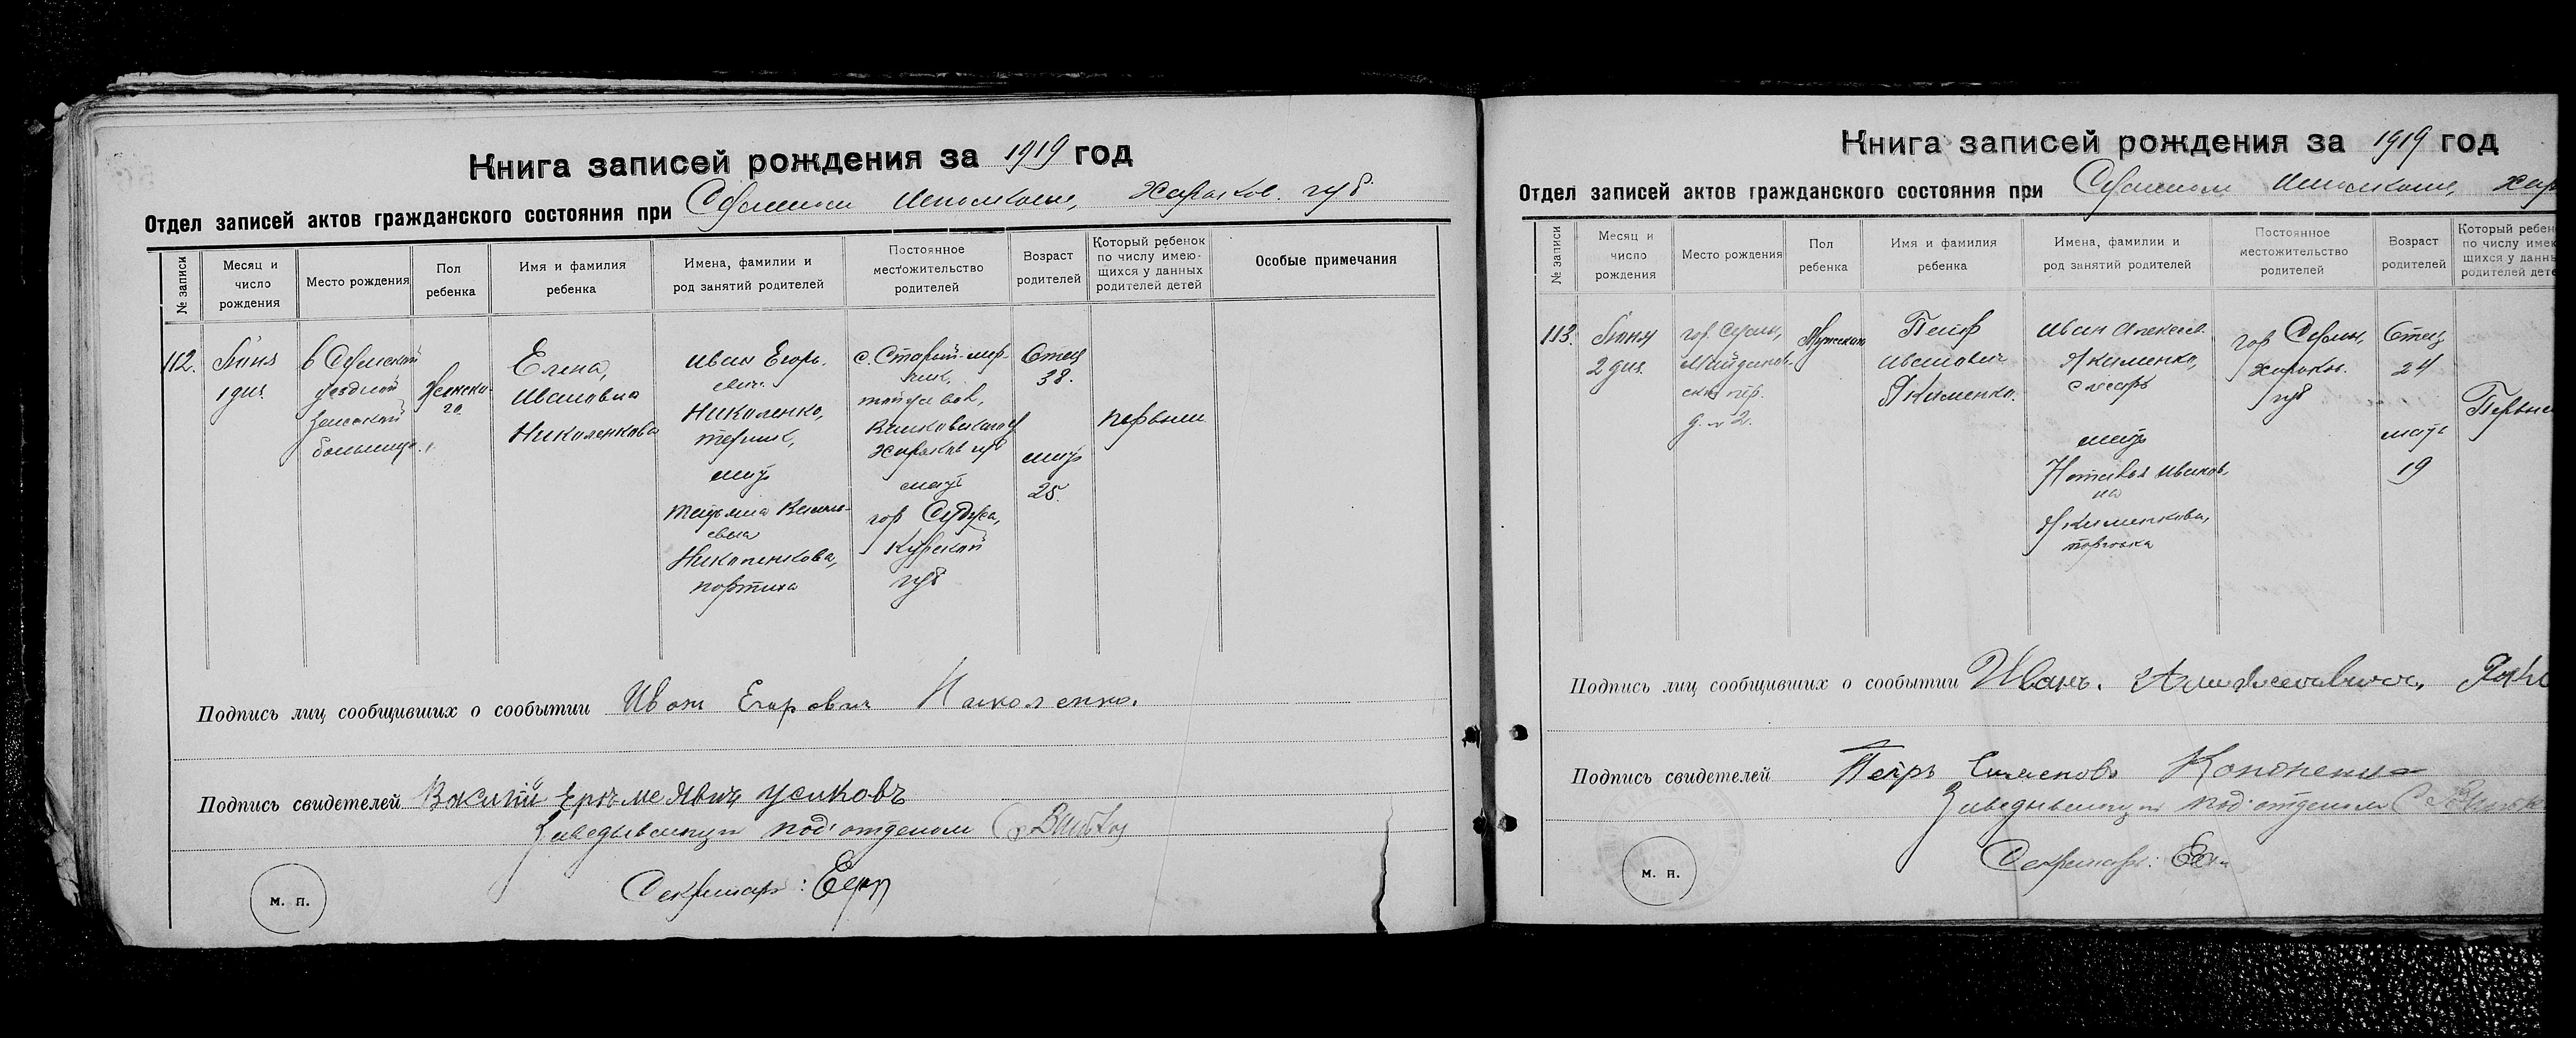 Книга записей рождения за 1919 год
Отдел записей актов гражданского состояния при Сумском Исполкоме, Харьков. губ.
№ записи
Месяц и
число
рождения
Место рождения
Пол
ребенка
Имя и фамилия
ребенка
Имена, фамилии и
род занятий родителей
Постоянное
местожительство
родителей
Возраст
родителей
Который ребенок
по числу имею-
щихся у данных
родителей детей
Особые примечания
112.
Июня
1 дня
в Сумской
уездной
земской
больнице
Женска-
го
Елена,
Ивановна
Николенкова
Иван Егоро-
вич
Николенко,
мать
Татьяна Василь-
евна
Николенкова,
портниха
с. Старый-мер-
чик,
той же вол,
Валковского у
Харьков губ
мать
гор Суджа,
Курской
губ
Отец
38.
мать
25.
первый
Подпись лиц сообщивших о сообытии Иван Егорович Николенко.
Подпись свидетелей Усиковъ
Заведывающий под'отделом
Секретарь:
М. П.
Книга записей рождения за 1919 год
Отдел записей актов гражданского состояния при Сумском Исполкоме, Хар
№ записи
Месяц и
число
рождения
Место рождения
Пол
ребенка
Имя и фамилия
ребенка
Имена, фамилии и
род занятий родителей
Постоянное
местожительство
родителей
Возраст
родителей
Который ребен
по числу имек
щихся у данны
родителей дете
113.
Июня
2 дня
гор. Сумы,
пер.
д. № 2.
Мужской
Петр
Иванович
Якименко.
Иван Алексеев.
Якименко,
слесарь
мать
Наталья Иванов,
на
Якименкова,
гор Сумы,
Харьков.
губ
Отец
24
мать
19
Первый
Подпись лиц сообщивших о сообытии Иванъ.
Подпись свидетелей Петръ
Заведывающий под'отделом
Секретарь:
М. П.